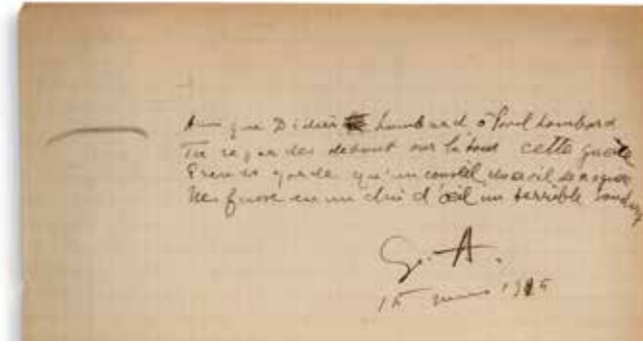 Ainsi que Didier Lombard ô Paul Lombard
Tu regardes debout sur la tour cette guerre
Prends garde qu'un
Ne fasse en un clin d'œil un terrible
G. A.
15 mars 1915